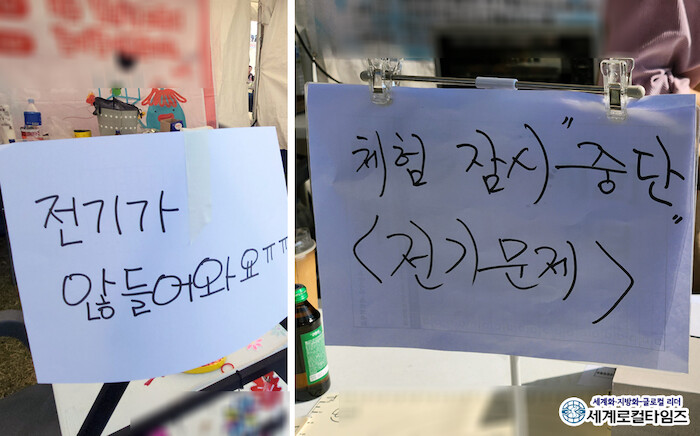 전기가
않들어와요ㅠㅠ
체험 잠시 "중단"
<전기문제>
세계화·지방화·글로컬 리더
세계로컬타임즈